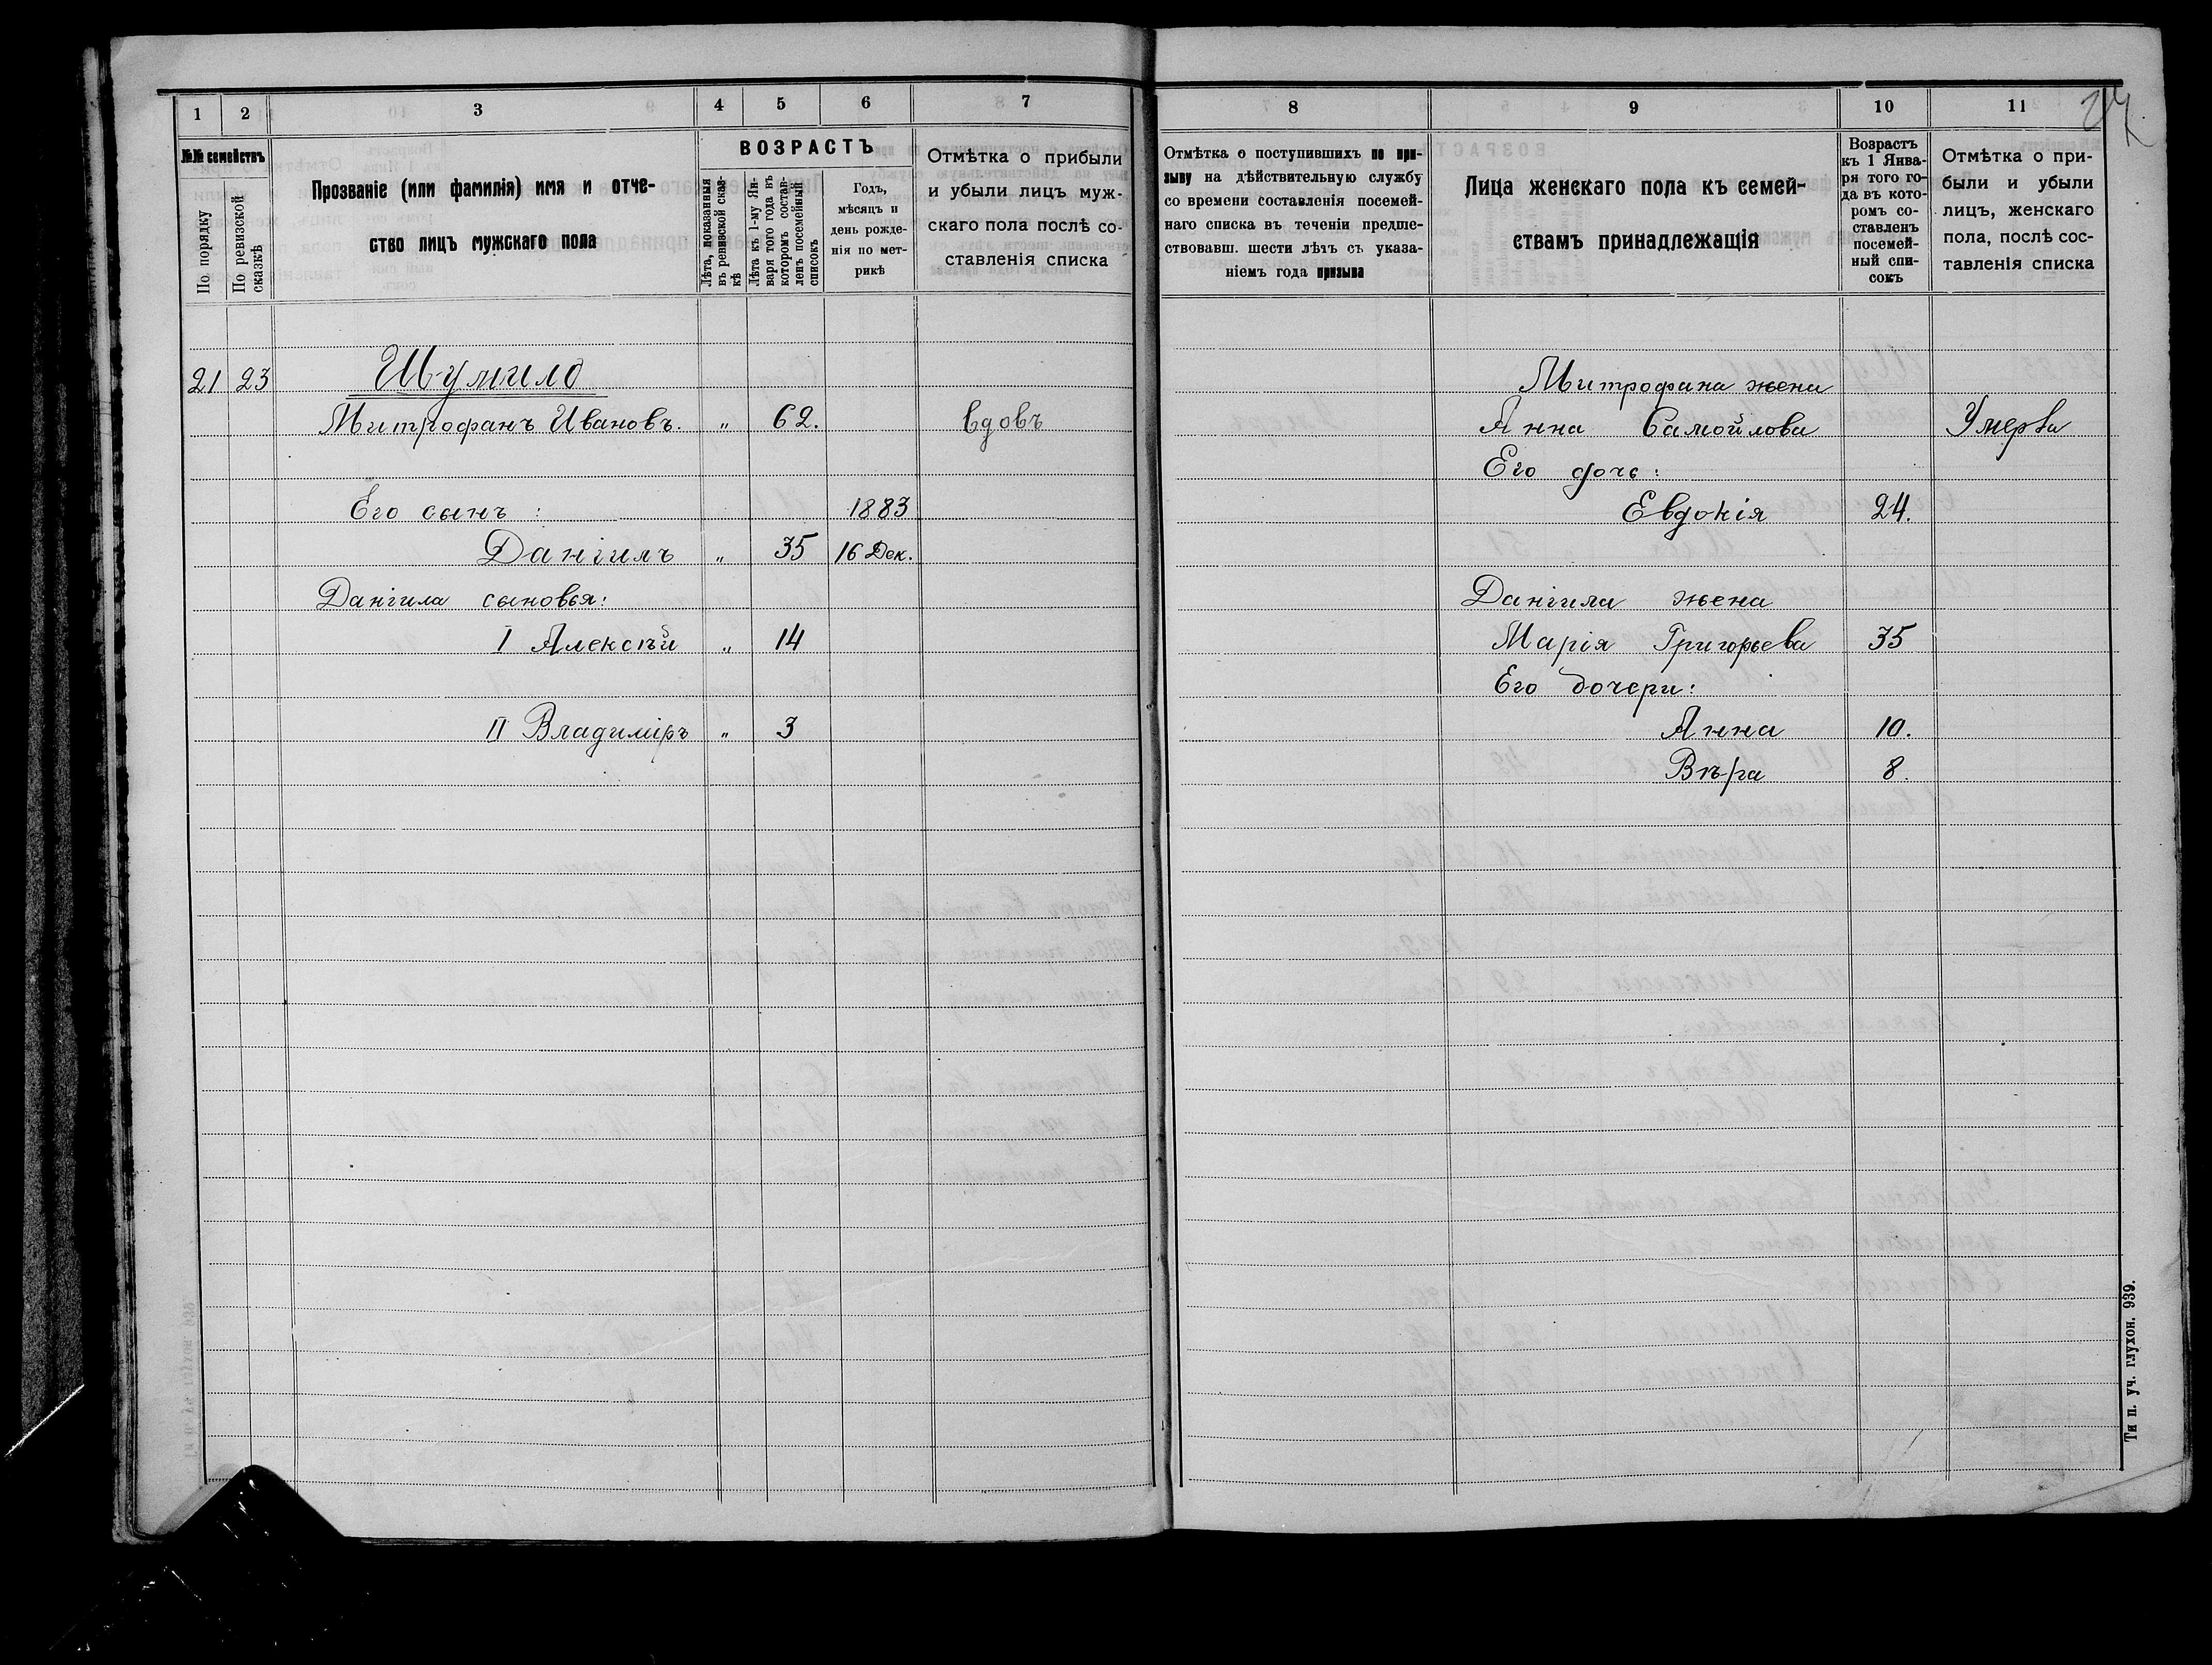 1 2 3 4 5 6 7
№№ семействъ
По порядку
По ревизской сказкѣ
Прозваніе (или фамилія) имя и отче-
ство лицъ мужскаго пола
ВОЗРАСТЪ
Лѣта, показанныя
въ ревизской сказ-
кѣ
Лѣта къ 1-му Ян-
варя того года въ
которомъ состав-
ленъ посемейный
списокъ
Годъ,
мѣсяцъ и
день рожде-
нія по мет-
рикѣ
Отмѣтка о прибыли
и убыли лицъ муж-
скаго пола послѣ со-
ставленія списка
21 23 Шумило
Митрофанъ Ивановъ. „ 62. Вдовъ
Его сынъ : 1883
Даніилъ „ 35 16 Дек.
Даніила сыновья:
I Алексѣй „ 14
II Владиміръ „ 3
8 9 10 11
Отмѣтка о поступившихъ по при-
зыву на дѣйствительную службу
со времени составленія посемей-
наго списка въ теченіи предше-
ствовавш. шести лѣтъ съ указа-
ніемъ года призыва
Лица женскаго пола къ семей-
ствамъ принадлежащія
Возрастъ
къ 1 Янва-
ря того го-
да въ кото-
ромъ со-
ставленъ
посемей-
ный спи-
сокъ
Отмѣтка о при-
были и убыли
лицъ, женскаго
пола, послѣ сос-
тавленія списка
Митрофана жена
Анна Самойлова Умерва
Его дочь:
Евдокія 24.
Даніила жена
Марія Григорьева 35
Его дочери:
Анна 10.
Вѣра 8.
Тип. уч. глухон. 939.